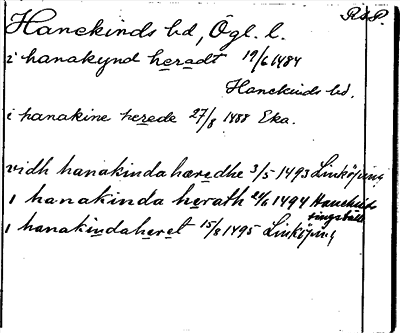 Hanekinds hd, Ögl. l. R&P.
i hanakynd heradt 19/6 1484
Hanekinds hd.
i hanakine herede 27/8 1488 Eka.
vidh hanakinda hæredhe 3/5 1493 Linköping
i hanakinda herath 24/6 1494 Hanekinds
tingställe
i hanakindaheret 15/8 1495 Linköping